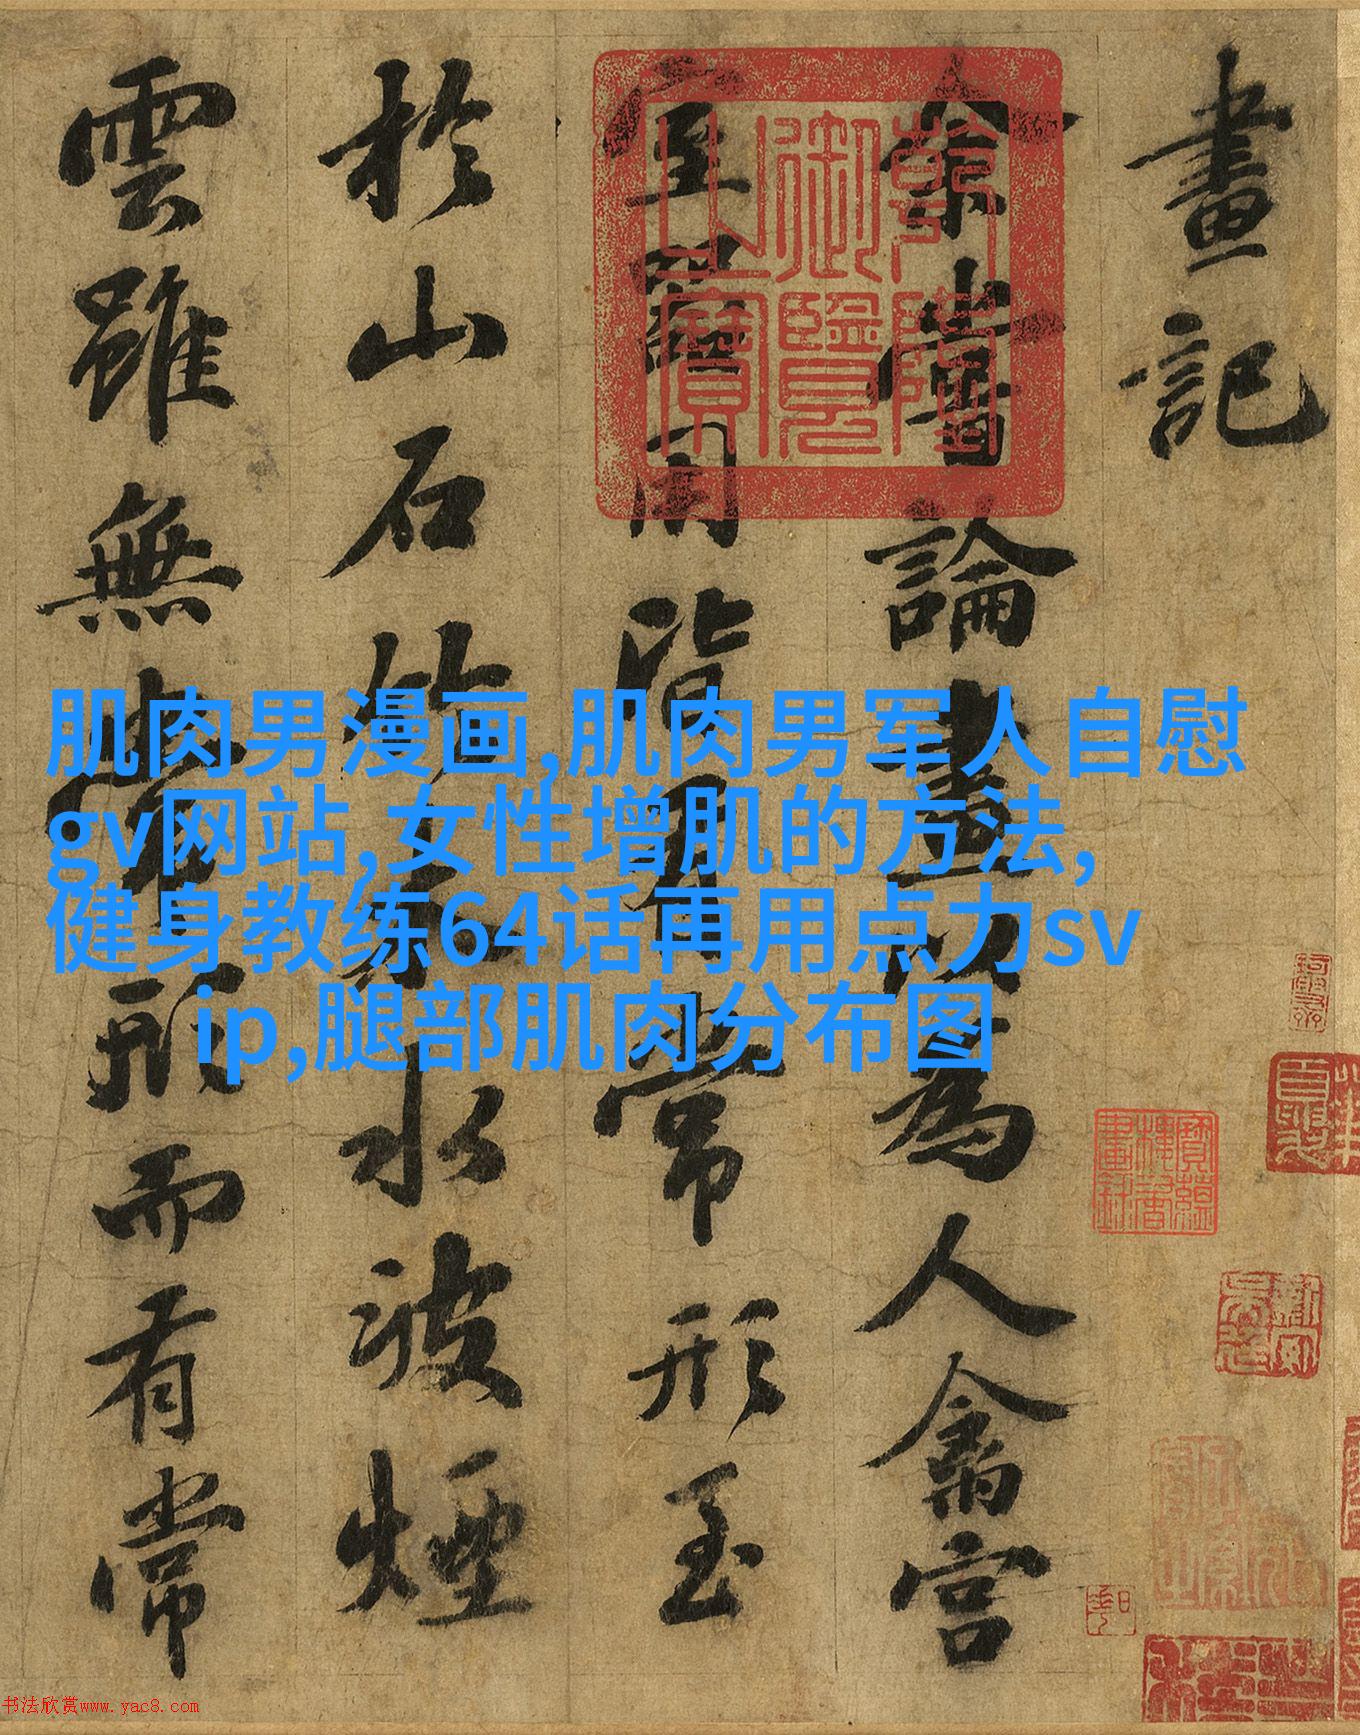 畫記
余嘗論畫以為人禽宮
室器用皆有常形至
於山石竹木水波煙
雲雖無常形而有常
乾隆
御覽
之寶
肌肉男漫画,肌肉男军人自慰
gv网站,女性增肌的方法,
健身教练64话再用点力sv
ip,腿部肌肉分布图
寶蘊
樓書
畫錄
书法欣赏www.yac8.com